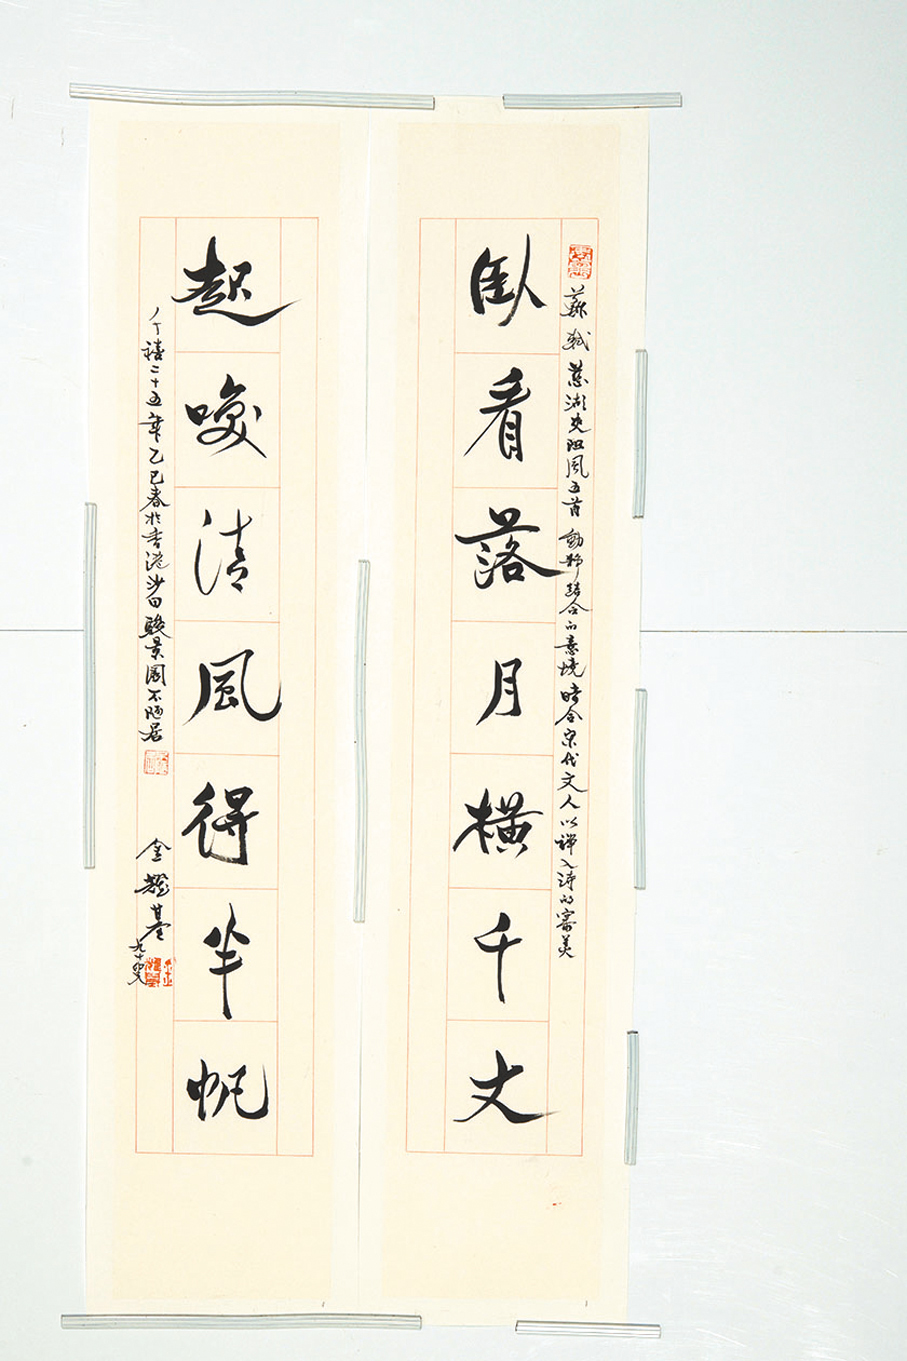 蘇軾慈湖夾阻風五首 動靜結合的意境 暗合宋代文人以禪入詩的審美
臥看落月橫千丈
起喚清風得半帆
千禧二十五年乙巳春於香港沙田駿景園不陋居
金耀基
九十